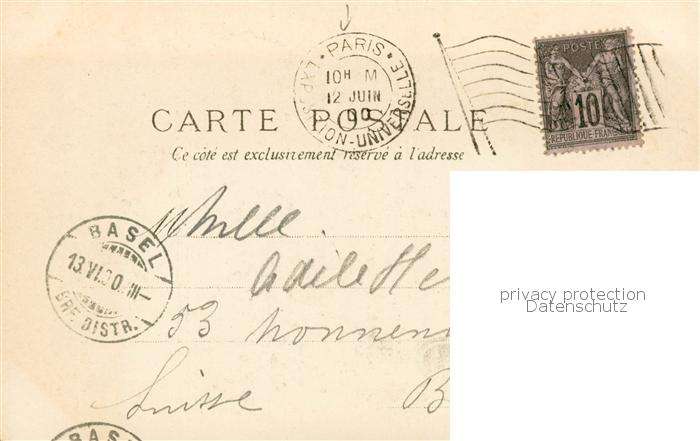 PARIS
EXPOSITION-UNIVERSELLE
10H M
12 JUIN
00
POSTE
10
REPUBLIQUE FRANC
CARTE POSTALE
Ce côté est exclusivement réservé à l'adresse
Mlle.
Adile He
53 Nonnen
Suisse B
BASEL
13.VI.00.III-
BRF. DISTR.
privacy protection
Datenschutz
BASEL